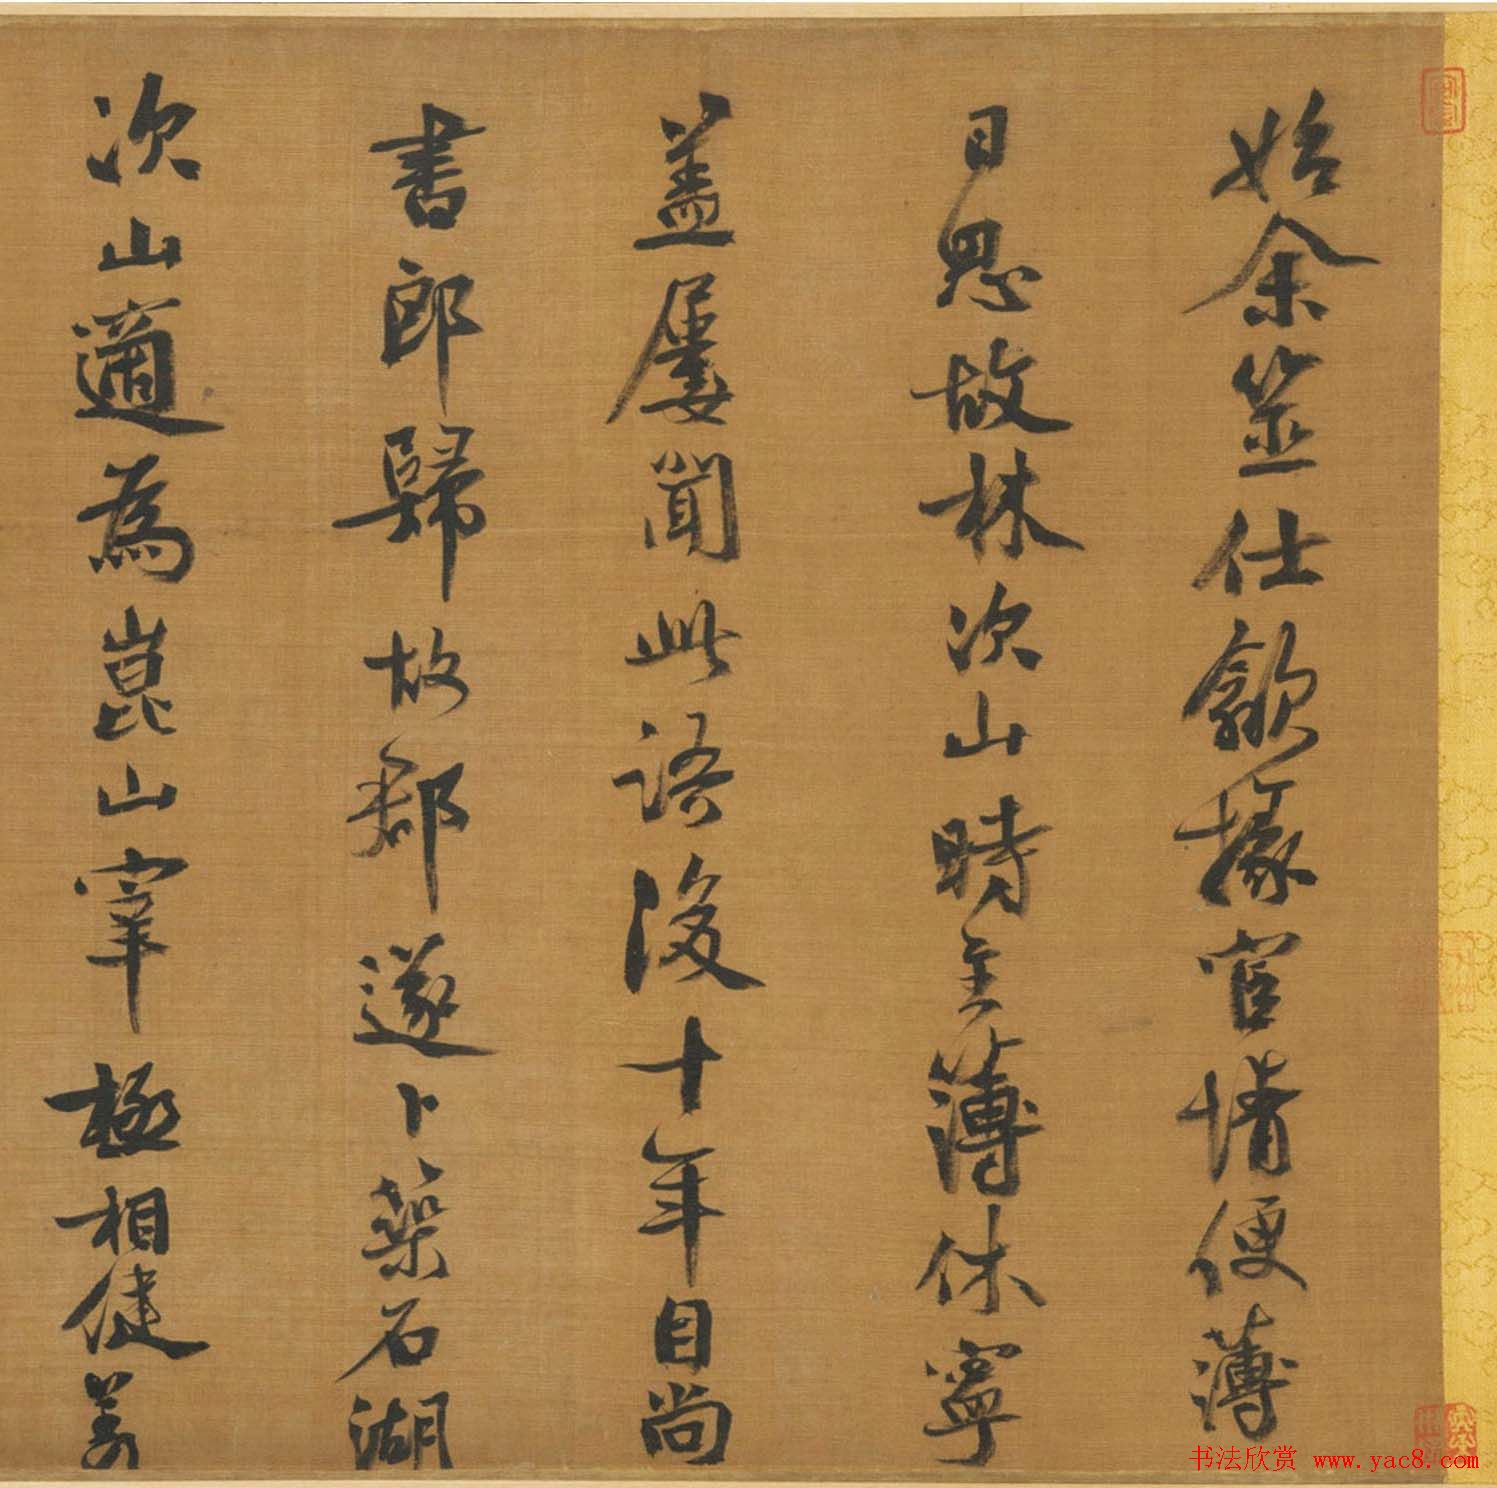 始余筮仕歙掾宦情便薄
日思故林次山時主薄休寧
盖屢聞此語後十年自尚
書郎歸故郡遂卜築石湖
次山適為崑山宰極相健羨
书法欣赏 www.yac8.com